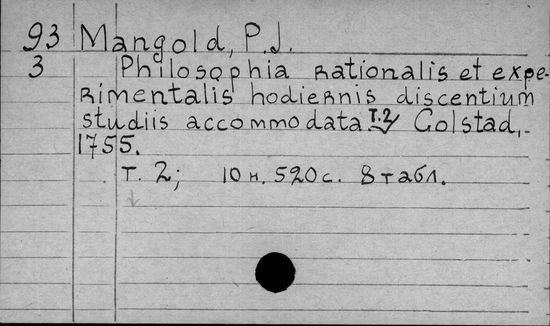 93 Mangold, P.J.
3 Philosophia rationalis et expe-
rimentalis hodiernis discentium
studiis accommodata T.2 Golstad,
1755.
Т. 2; 10 н. 520 с. 8 табл.